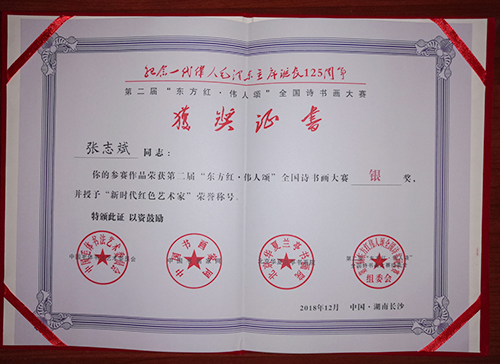 纪念一代伟人毛泽东主席诞辰125周年
第二届“东方红·伟人颂”全国诗书画大赛
獲奖证书
张志斌 同志：
你的参赛作品荣获第二届“东方红·伟人颂”全国诗书画大赛 银 奖。
并授予“新时代红色艺术家”荣誉称号。
特颁此证 以资鼓励
中国书画家网
北京华夏兰亭书画院
组委会
2018年12月 中国·湖南长沙